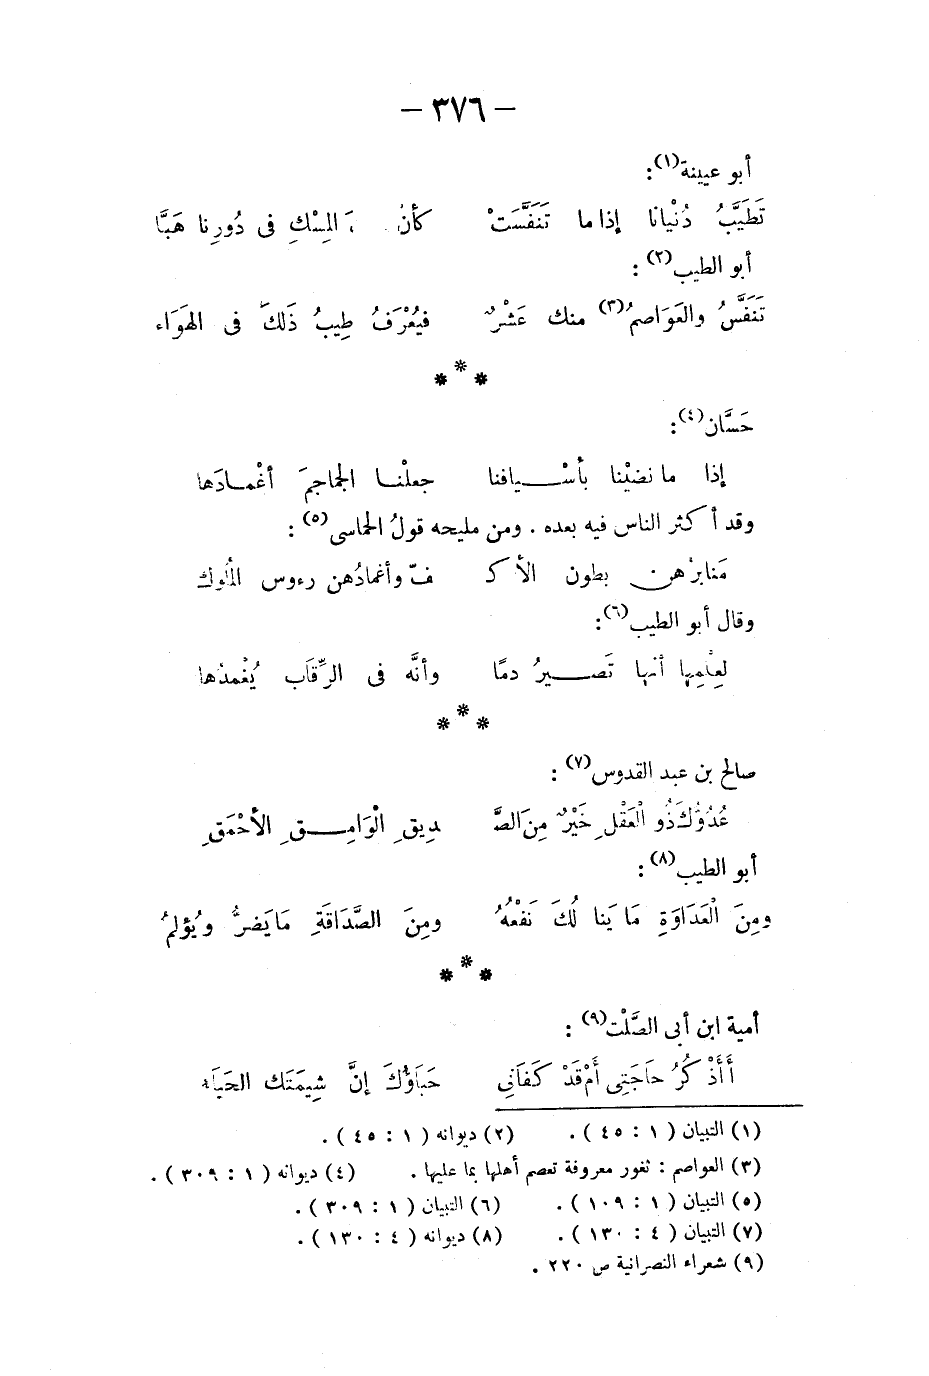 — ٣٧٦ —
أبو عيينة(١):
تَطَيَّبُ دُنْيانا إذا ما تَنَفَّسَتْ كأنّ المِسْكِ فى دُورِنا هَبَّا
أبو الطيب(٢):
تَنَفَّسُ والعَوَاصمُ(٣) منك عَشْرٌ فيُعْرَفُ طِيبُ ذَلكَ فى الهَوَاء
* * *
حَسَّان(٤):
إذا ما نضيْنا بأسْيافنا جعلْنا الجماجمَ أغْمادَها
وقد أكثر الناس فيه بعده . ومن مليحه قولُ الحماسى(٥):
مَنابرُهن بطون الأكـ ـفّ وأغمادُهن رءوس المُلوك
وقال أبو الطيب(٦):
لعِلْمِها أنها تَصيرُ دمًا وأنَّه فى الرِّقَاب يُغْمدُها
* * *
صالح بن عبد القدوس(٧):
عَدُوُّكَ ذُو الْعَقْلِ خَيْرٌ مِنَ الصَّـ ـدِيقِ الْوَامِقِ الأحْمَقِ
أبو الطيب(٨):
ومِنَ الْعَدَاوَةِ مَا يَنَا لُكَ نَفْعُهُ ومِنَ الصَّدَاقَةِ مَا يَضرُّ ويُؤلمُ
* * *
أمية ابن أبى الصَّلْت(٩):
أَأَذْكُرُ حاجَتِى أَمْ قَدْ كَفَانِى حَبَاؤُكَ إنَّ شِيمَتَك الحَيَاء
(١) التبيان ( ١ : ٤٥ ) . (٢) ديوانه ( ١ : ٤٥ ) .
(٣) العواصم : ثغور معروفة تعصم أهلها بما عليها . (٤) ديوانه ( ١ : ٣٠٩ ) .
(٥) التبيان ( ١ : ١٠٩ ) . (٦) التبيان ( ١ : ٣٠٩ ) .
(٧) التبيان ( ٤ : ١٣٠ ) . (٨) ديوانه ( ٤ : ١٣٠ ) .
(٩) شعراء النصرانية ص ٢٢٠ .